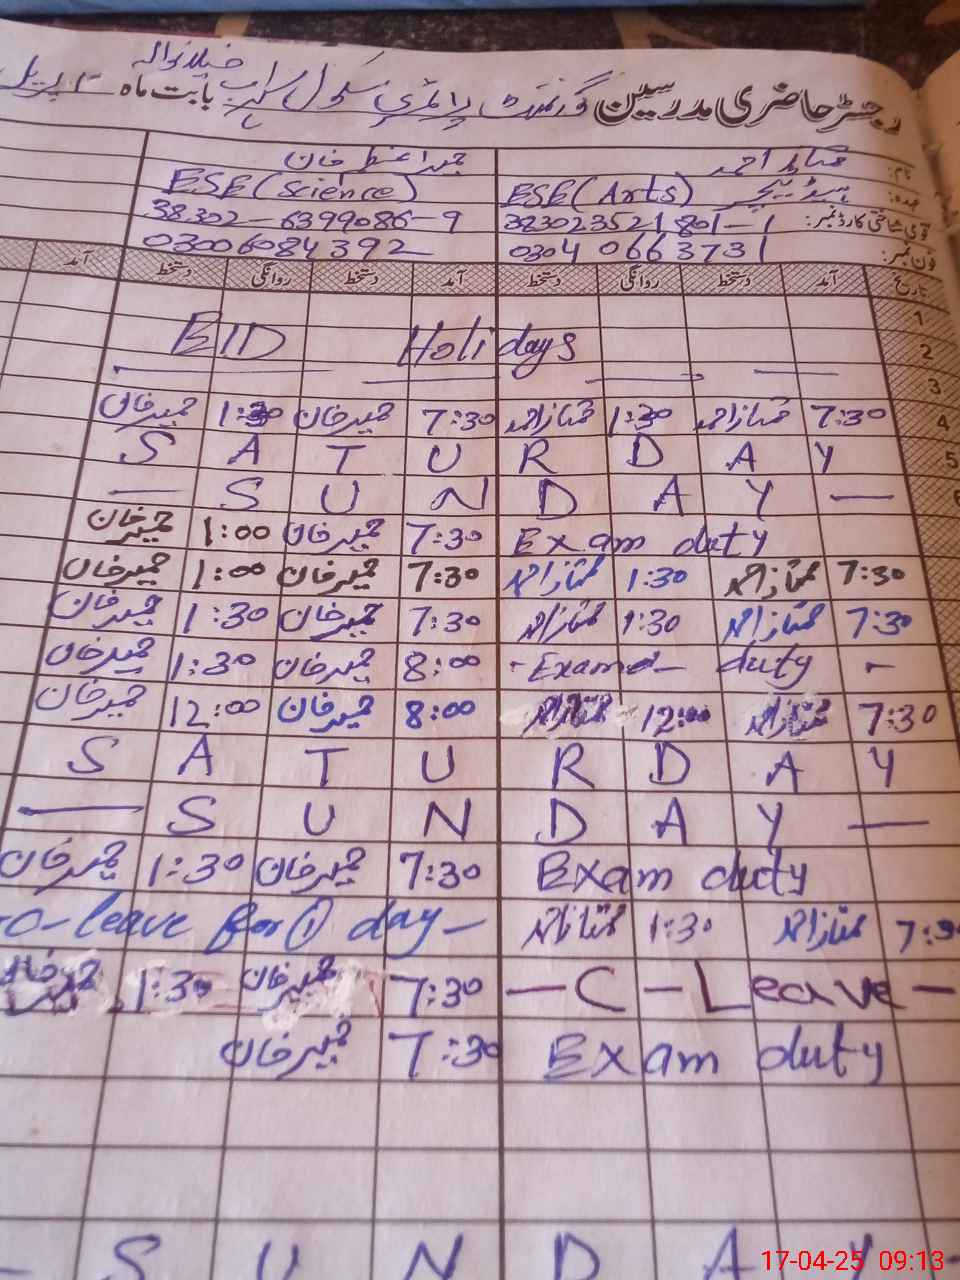 رجسٹر حاضری مدرسین گورنمنٹ پرائمری سکول بابت ماہ اپریل
نام: ممتاز احمد خان
عہدہ: ہیڈ ٹیچر ESE (Arts) ESE (Science)
قومی شناختی کارڈ نمبر: 383023521801-1 38302-6399086-9
فون نمبر: 0304 0663731 03006084392
تاریخ آمد دستخط روانگی دستخط آمد دستخط روانگی دستخط آمد
1
2 EID Holidays
3
4 7:30 ممتاز احمد 1:30 ممتاز احمد 7:30 حمیر خان 1:30 حمیر خان
5 S A T U R D A Y
6 — S U N D A Y —
Exam duty 7:30 حمیر خان 1:00 حمیر خان
7:30 ممتاز احمد 1:30 ممتاز احمد 7:30 حمیر خان 1:00 حمیر خان
7:30 ممتاز احمد 1:30 ممتاز احمد 7:30 حمیر خان 1:30 حمیر خان
- Exam - duty - 8:00 حمیر خان 1:30 حمیر خان
7:30 ممتاز احمد 12:00 ممتاز احمد 8:00 حمیر خان 12:00 حمیر خان
S A T U R D A Y
— S U N D A Y —
Exam duty 7:30 حمیر خان 1:30 حمیر خان
7:30 ممتاز احمد 1:30 ممتاز احمد - leave for 1 day -
— C - Leave — 7:30 حمیر خان 1:30 حمیر خان
Exam duty 7:30 حمیر خان
- S U N D A Y -
17-04-25 09:13